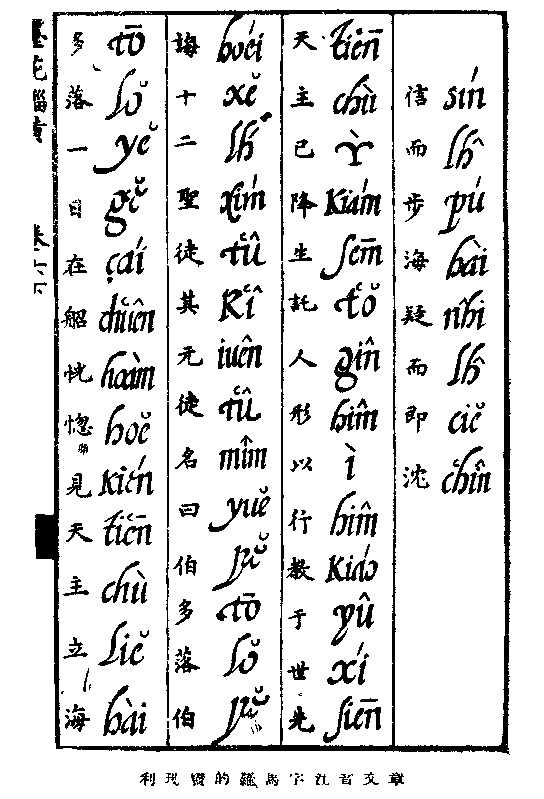 信 sín 而 lĥ 步 pú 海 hài 疑 nhî 而 lĥ 即 ciĕ 沈 chîn
天 tiēn 主 chù 已 ỳ 降 kiám 生 sēm 託 tʻŏ 人 gîn 形 hîm 以 ì 行 hîm 教 kiáo 于 yû 世 xí 先 siēn
誨 hoéi 十 xĕ 二 lh́ 聖 xím 徒 tʻû 其 kʻî 元 iuên 徒 tʻû 名 mîm 曰 yuĕ 伯 pĕ 多 tō 落 lŏ 伯 pĕ
多 tō 落 lŏ 一 yĕ 日 gĕ 在 çái 船 chʻuên 恍 hoàm 惚 hoĕ 見 kién 天 tʻiēn 主 chù 立 liĕ 海 hài
利瑪竇的羅馬字注音文章